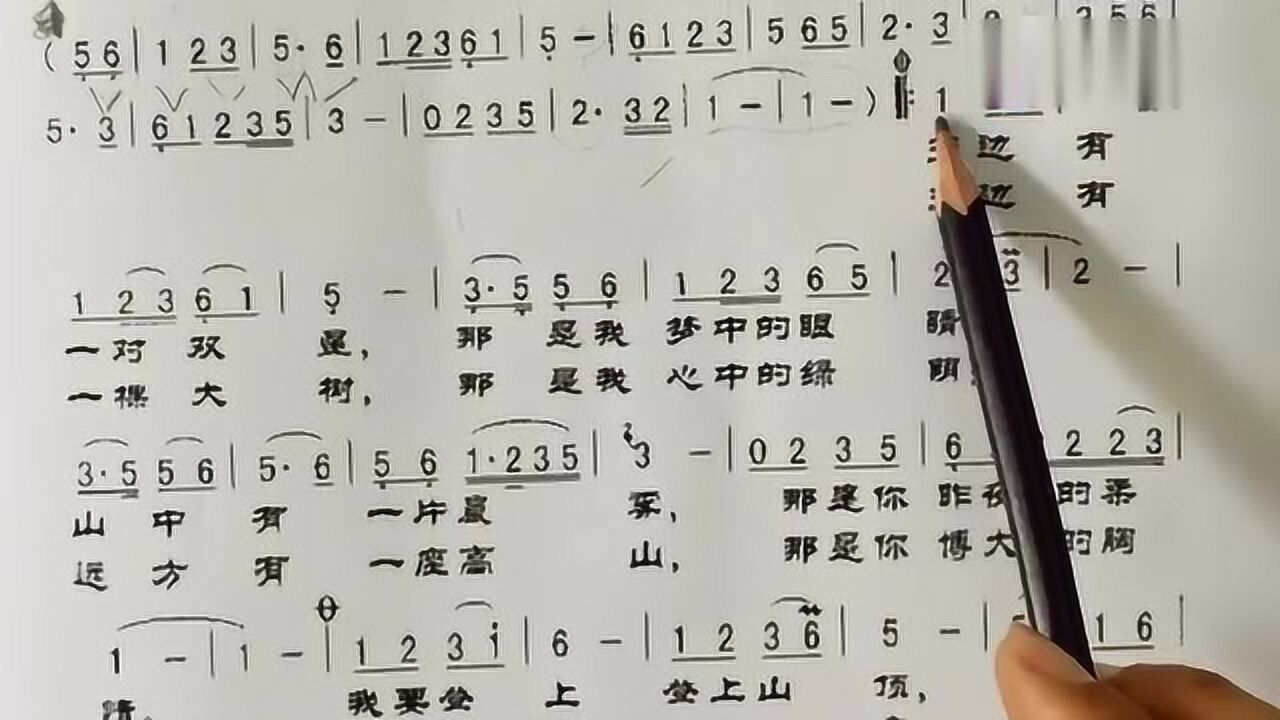 ( 5 6 | 1 2 3 | 5· 6 | 1 2 3 6 1 | 5 – | 6 1 2 3 | 5 6 5 | 2· 3 |
5· 3 | 6 1 2 3 5 | 3 – | 0 2 3 5 | 2· 3 2 | 1 – | 1 – ) ‖: 1
边 有
边 有
1 2 3 6 1 | 5 – | 3· 5 5 6 | 1 2 3 6 5 | 2 3 | 2 – |
一对 双 星， 那 是我 梦中的眼 睛
一棵 大 树， 那 是我 心中的绿 荫
3· 5 5 6 | 5· 6 | 5 6 1· 2 3 5 | 3 – | 0 2 3 5 | 6 2 2 3 |
山 中 有 一片晨 雾， 那是你 昨夜 的柔
远 方 有 一座高 山， 那是你 博大 的胸
1 – | 1 – | 1 2 3 i | 6 – | 1 2 3 6 | 5 – | 1 6 |
我要登 上 登上山 顶，